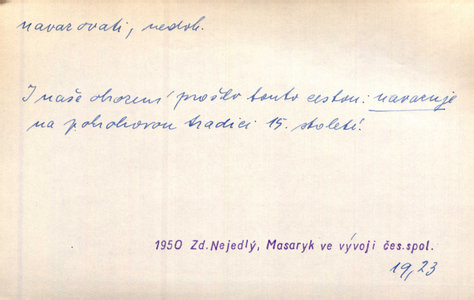 navazovati, nedok.
I naše obrození prošlo touto cestou: navazuje
na pokrokovou tradici 15. století.
1950 Zd. Nejedlý, Masaryk ve vývoji čes.spol.
19, 23